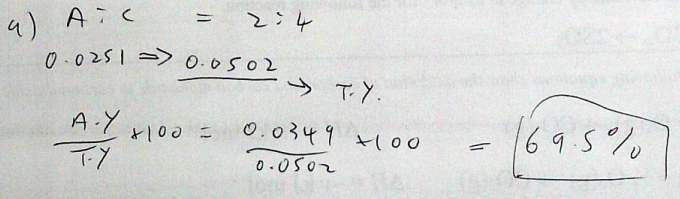 a) A : C = 2 : 4
0.0251 => 0.0502 → T.Y.
A.Y/T.Y ×100 = 0.0349/0.0502 ×100 = 69.5%